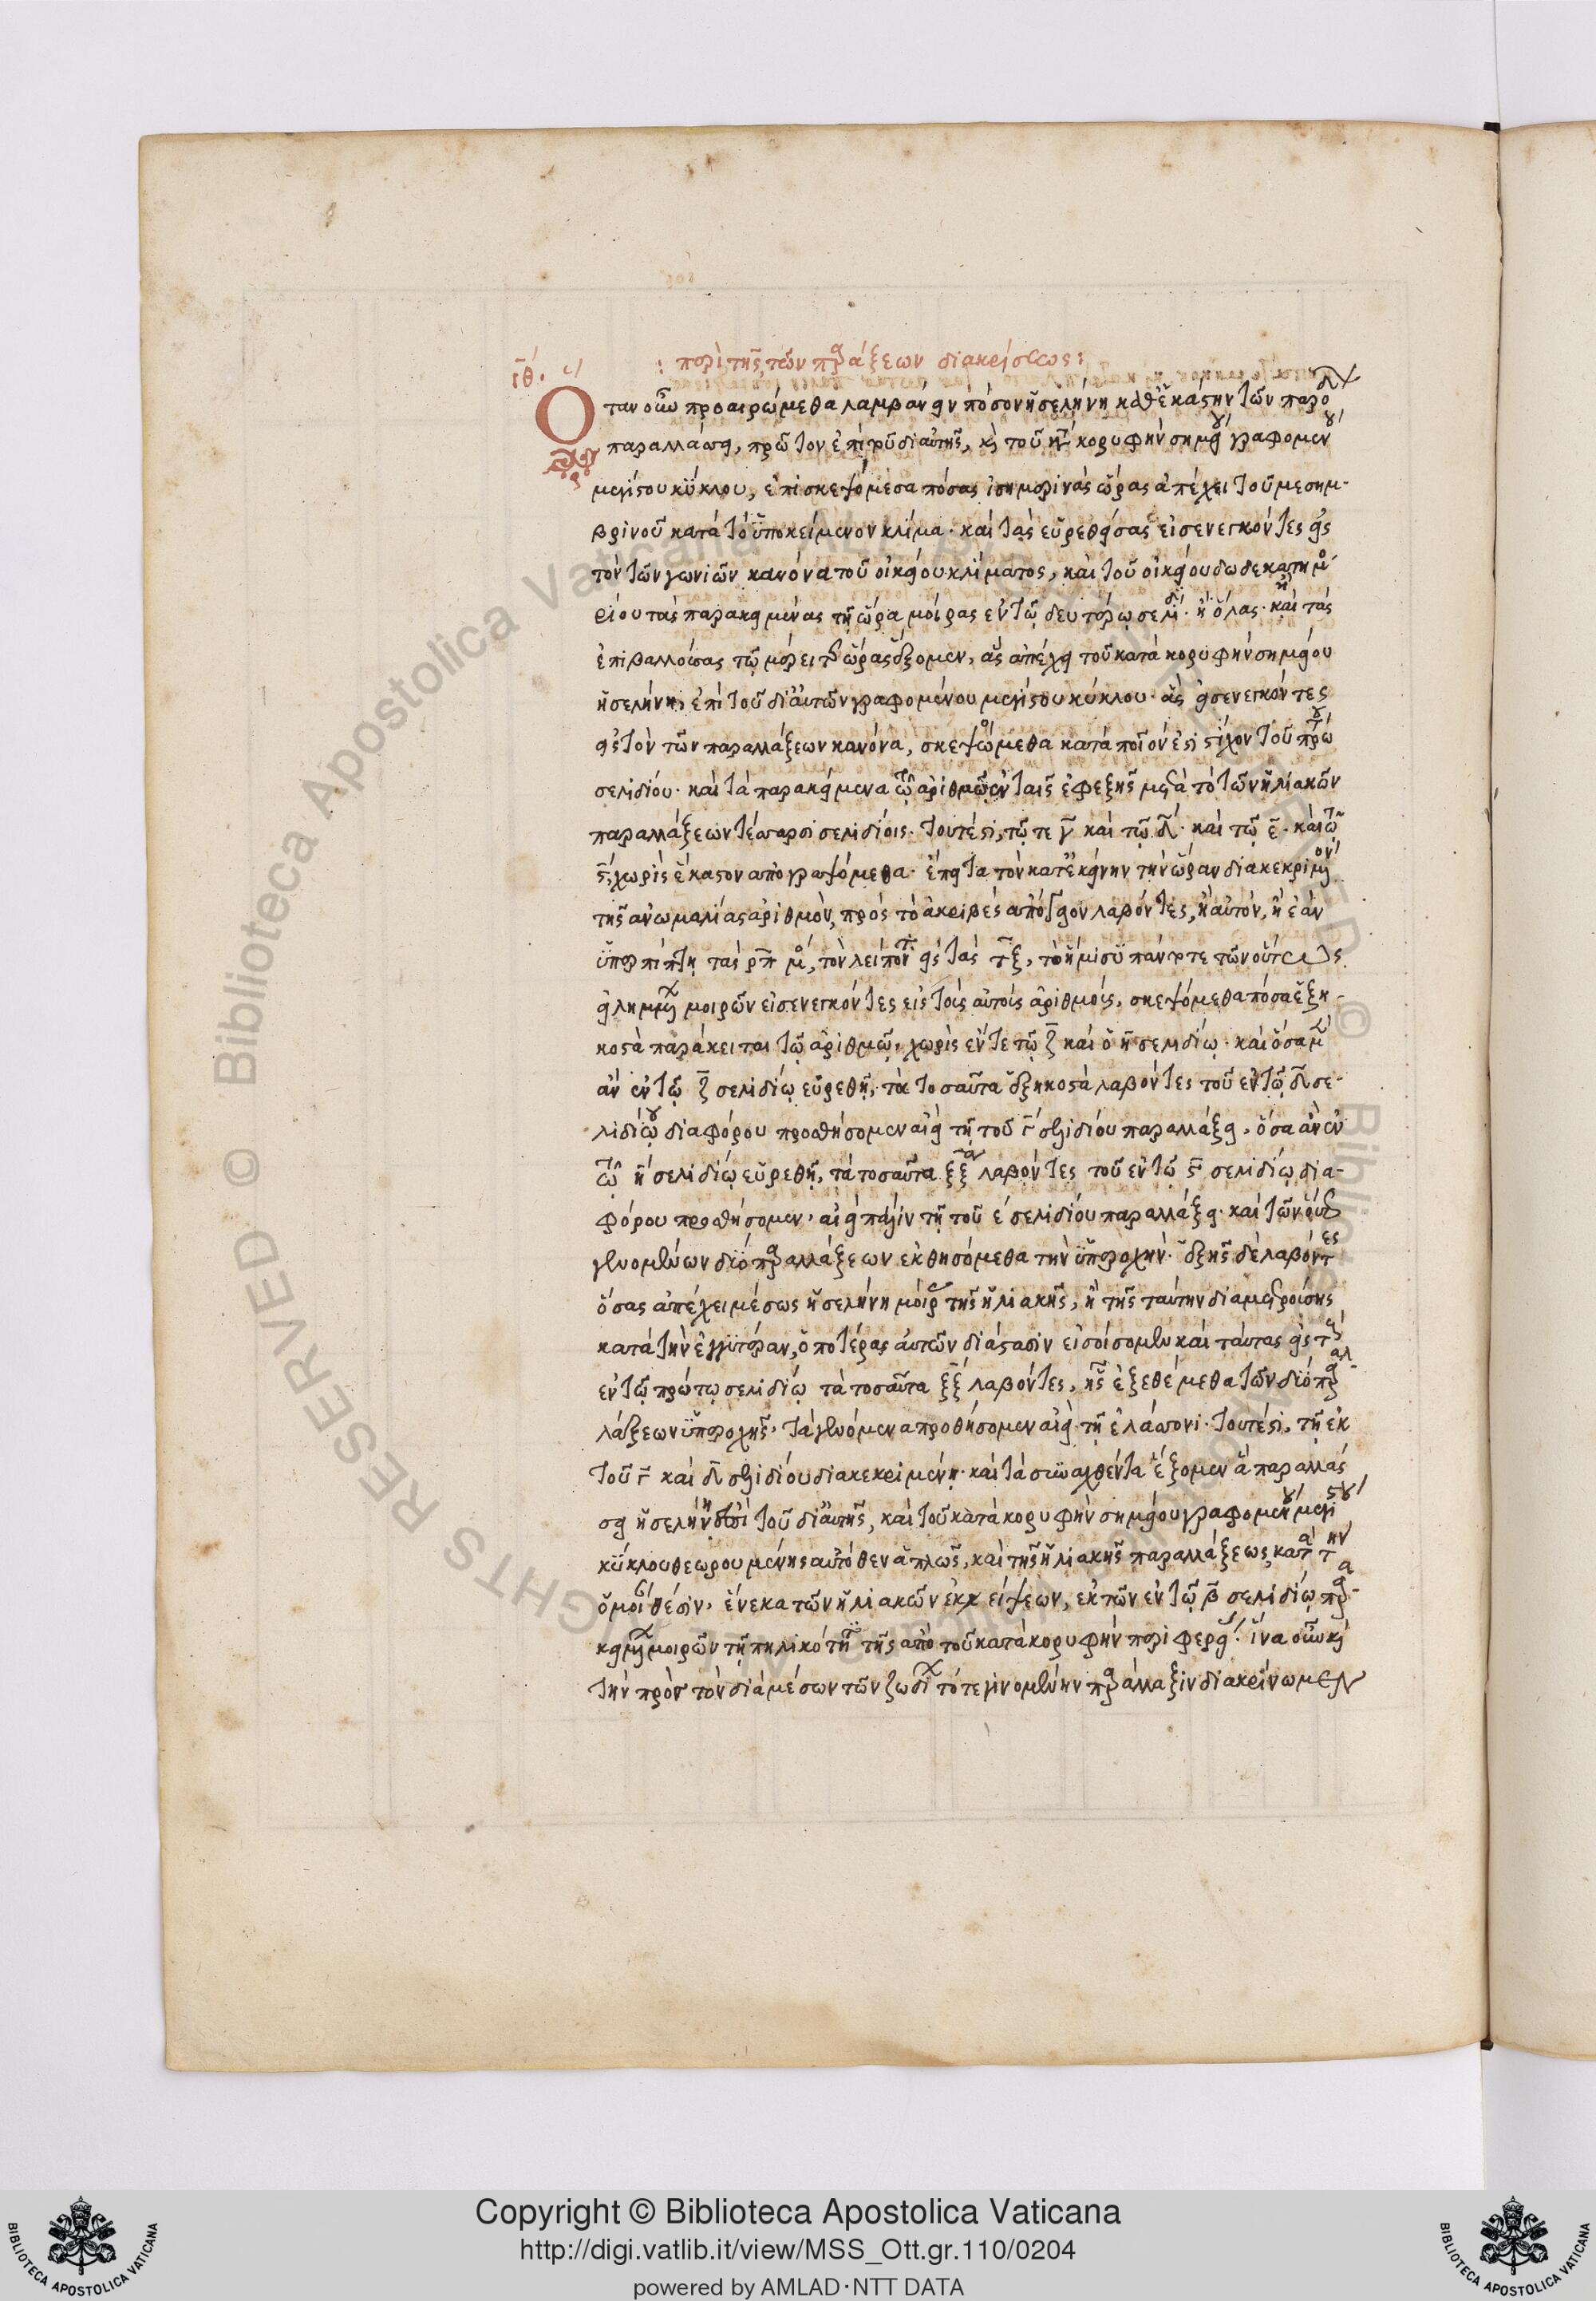 ιθ. : περὶ τῆς τῶν παραλλάξεων διακρίσεως :
Ὅταν οὖν προαιρώμεθα λαμβάνειν πόσον ἡ σελήνη καθ' ἑκάστην τῶν παρόδων
παραλλάσσει, πρῶτον ἐπὶ τοῦ δι' αὐτῆς, καὶ τοῦ κατὰ κορυφὴν σημείου γραφομένου
μεγίστου κύκλου, ἐπισκεψόμεθα πόσας ἰσημερινὰς ὥρας ἀπέχει τοῦ μεσημ-
βρινοῦ κατὰ τὸ ὑποκείμενον κλίμα. καὶ τὰς εὑρεθείσας εἰσενεγκόντες εἰς
τὸν τῶν γωνιῶν κανόνα τοῦ οἰκείου κλίματος, καὶ τοῦ οἰκείου δωδεκατημο-
ρίου τὰς παρακειμένας τῇ ὥρα μοίρας ἐν τῷ δευτέρῳ σελιδίῳ. ἢ ὅλας. ἢ καὶ τὰς
ἐπιβαλλούσας τῷ μέρει τῆς ὥρας ἕξομεν, ἃς ἀπέχει τοῦ κατὰ κορυφὴν σημείου
ἡ σελήνη, ἐπὶ τοῦ δι' αὐτῶν γραφομένου μεγίστου κύκλου. ἃς εἰσενεγκόντες
εἰς τὸν τῶν παραλλάξεων κανόνα, σκεψόμεθα κατὰ ποῖον ἐστι στίχον τοῦ πρώτου
σελιδίου. καὶ τὰ παρακείμενα τῷ ἀριθμῷ ἐν ταῖς ἐφεξῆς μετὰ τὸ τῶν ἡλιακῶν
παραλλάξεων τέσσαρσι σελιδίοις. τουτέστι, τῷ τε γ καὶ τῷ δ. καὶ τῷ ε. καὶ τῷ
ς, χωρὶς ἕκαστον ἀπογραψόμεθα. ἔπειτα τὸν κατ' ἐκείνην τὴν ὥραν διακεκριμένον
τῆς ἀνωμαλίας ἀριθμὸν, πρὸς τὸ ἀκριβὲς ἀπόγειον λαβόντες, ἢ αὐτὸν, ἢ ἐὰν
ὑπερπίπτῃ τὰς ρπ μο, τὸν λείποντα εἰς τὰς τξ, τὸ ἥμισυ πάντοτε τῶν οὕτως
εἰλημμένων μοιρῶν εἰσενεγκόντες εἰς τοὺς αὐτοὺς ἀριθμούς, σκεψόμεθα πόσα ἑξη-
κοστὰ παράκειται τῷ ἀριθμῷ, χωρὶς ἔν τε τῷ ζ καὶ ἐν τῷ η σελιδίῳ. καὶ ὅσα μὲν
ἂν ἐν τῷ ζ σελιδίῳ εὑρεθῇ, τὰ τοσαῦτα ἑξηκοστὰ λαβόντες τοῦ ἐν τῷ δ σε-
λιδίῳ διαφόρου προσθήσομεν αἰεὶ τῇ τοῦ γ σελιδίου παραλλάξει. ὅσα ἂν ἐν
τῷ η σελιδίῳ εὑρεθῇ, τὰ τοσαῦτα ξξα λαβόντες τοῦ ἐν τῷ ς σελιδίῳ δια-
φόρου προσθήσομεν. αἰεὶ πάλιν τῇ τοῦ ε σελιδίου παραλλάξει. καὶ τῶν οὕτως
γινομένων δύο παραλλάξεων ἐκθησόμεθα τὴν ὑπεροχήν. ἑξῆς δὲ λαβόντες
ὅσας ἀπέχει μέσως ἡ σελήνη μοίρας τῆς ἡλιακῆς, ἢ τῆς ταύτην διαμετρούσης
κατὰ τὴν ἐγγυτέραν, ὁποτέρας αὐτῶν διάστασιν εἰσοίσομεν καὶ ταύτας εἰς τοὺς
ἐν τῷ πρώτῳ σελιδίῳ τὰ τοσαῦτα ξξ λαβόντες, ἧς ἐξεθέμεθα τῶν δύο παραλ-
λάξεων ὑπεροχῆς. τὰ γινόμενα προσθήσομεν αἰεὶ τῇ ἐλάσσονι. τουτέστι, τῇ ἐκ
τοῦ γ καὶ δ σελιδίου διακεκριμένῃ. καὶ τὰ συναχθέντα ἕξομεν ἃ παραλλάσ-
σει ἡ σελήνη ἐπὶ τοῦ δι' αὐτῆς, καὶ τοῦ κατὰ κορυφὴν σημείου γραφομένου μεγίστου
κύκλου θεωρουμένης αὐτόθεν ἁπλῶς, καὶ τῆς ἡλιακῆς παραλλάξεως, κατὰ τὴν
ὁμοίαν θέσιν. ἕνεκα τῶν ἡλιακῶν ἐκλείψεων, ἐκ τῶν ἐν τῷ β σελιδίῳ παρα-
κειμένων μοιρῶν τῇ πηλικότητι τῆς ἀπὸ τοῦ κατὰ κορυφὴν περιφερείας. ἵνα οὖν καὶ
τὴν πρὸς τὸν διὰ μέσων τῶν ζωδίων τότε γινομένην παράλλαξιν διακρίνωμεν
Copyright © Biblioteca Apostolica Vaticana
http://digi.vatlib.it/view/MSS_Ott.gr.110/0204
powered by AMLAD·NTT DATA
BIBLIOTECA APOSTOLICA VATICANA
BIBLIOTECA APOSTOLICA VATICANA